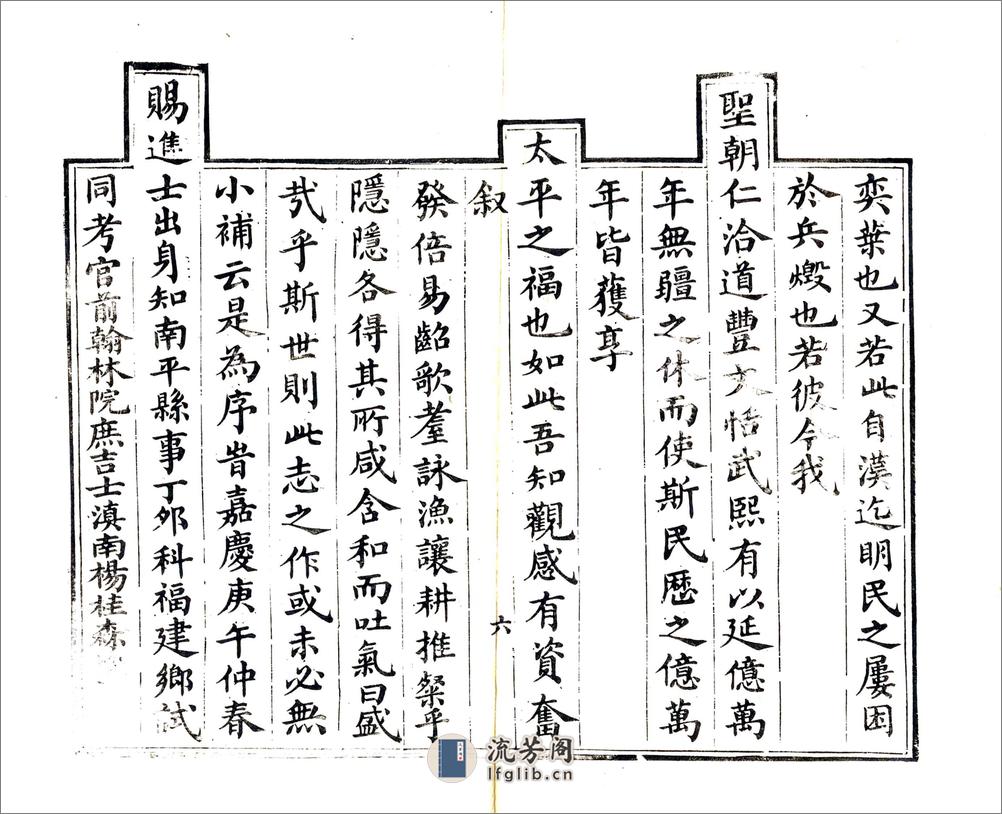 奕葉也又若此自漢迄明民之屢困
於兵燬也若彼今我
聖朝仁洽道豐文恬武熙有以延億萬
年無疆之休而使斯民歷之億萬
年皆獲享
太平之福也如此吾知觀感有資奮
叙
六
發倍易齠歌耋詠漁讓耕推粲乎
隱隱各得其所咸含和而吐氣曰盛
哉乎斯世則此志之作或未必無
小補云是為序旹嘉慶庚午仲春
賜進士出身知南平縣事丁夘科福建鄉試
同考官前翰林院庶吉士滇南楊桂森
流芳阁
lfglib.cn